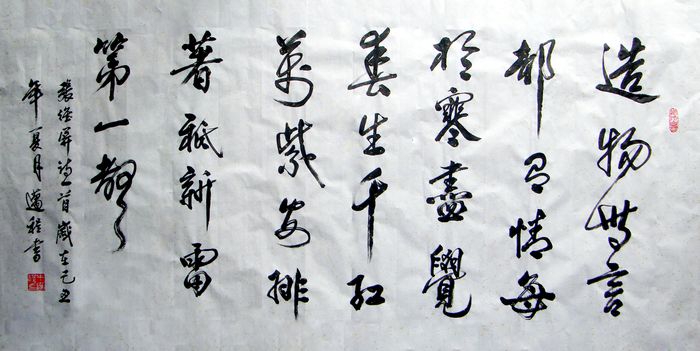 造物無言
都有情每
於寒盡覺
春生千紅
萬紫安排
著祇新雷
第一聲
張維屏詩一首歲在己丑
年夏月程書